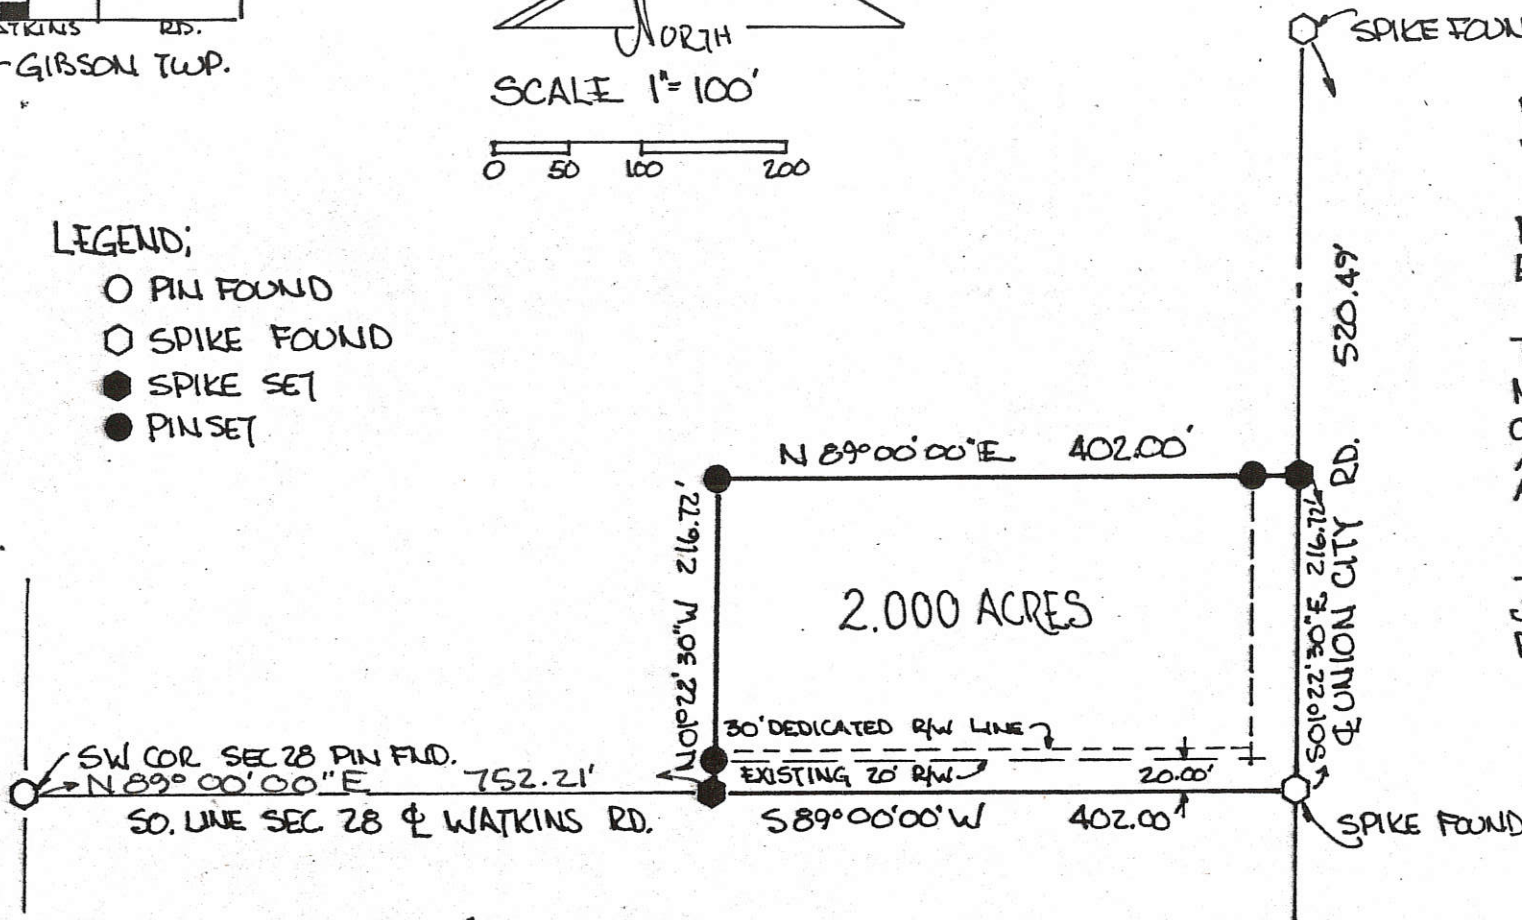 RD.
GIBSON TWP.
NORTH
SCALE 1"=100'
0 50 100 200
SPIKE
LEGEND;
PIN FOUND
SPIKE FOUND
SPIKE SET
PIN SET
520.49'
N 89°00'00"E 402.00'
N01°22'30"W 216.72'
2.000 ACRES
S01°22'30"E 216.72'
℄ UNION CITY RD.
30' DEDICATED R/W LINE
EXISTING 20' R/W
20.00'
SW COR SEC 28 PIN FND.
N 89° 00' 00" E 752.21'
SO. LINE SEC 28 ℄ WATKINS RD.
S89°00'00"W 402.00'
SPIKE FOUND